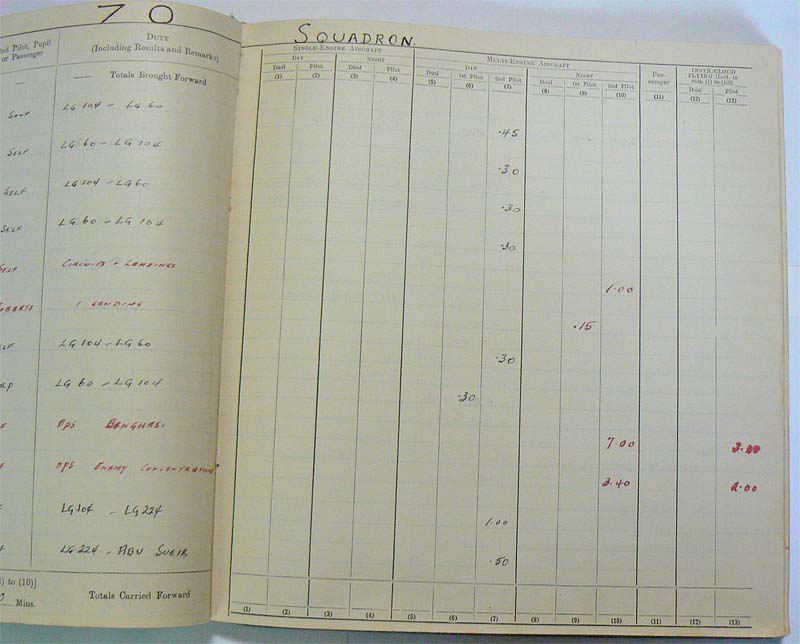 70 SQUADRON.
2nd Pilot, Pupil or Passenger
DUTY
(Including Results and Remarks)
SINGLE-ENGINE AIRCRAFT
MULTI-ENGINE AIRCRAFT
DAY NIGHT DAY NIGHT
Passenger
INSTR/CLOUD FLYING [Incl. in cols. (1) to (10)]
Dual Pilot Dual Pilot Dual 1st Pilot 2nd Pilot Dual 1st Pilot 2nd Pilot Dual Pilot
(1) (2) (3) (4) (5) (6) (7) (8) (9) (10) (11) (12) (13)
— — Totals Brought Forward
SELF LG 104 - LG 60 .45
SELF LG 60 - LG 104 .30
SELF LG 104 - LG 60 .30
SELF LG 60 - LG 104 .30
SELF CIRCUITS + LANDINGS 1.00
OBERTS 1 LANDING .15
ELF LG 104 - LG 60 .30
LG 60 - LG 104 .30
F OPS BENGHASI 7.00
OPS ENEMY CONCENTRATIONS 3.40 2.00
F LG 104 - LG 224 1.00
F LG 224 - ABU SUEIR .50
) to (10)]
Mins. Totals Carried Forward
(1) (2) (3) (4) (5) (6) (7) (8) (9) (10) (11) (12) (13)